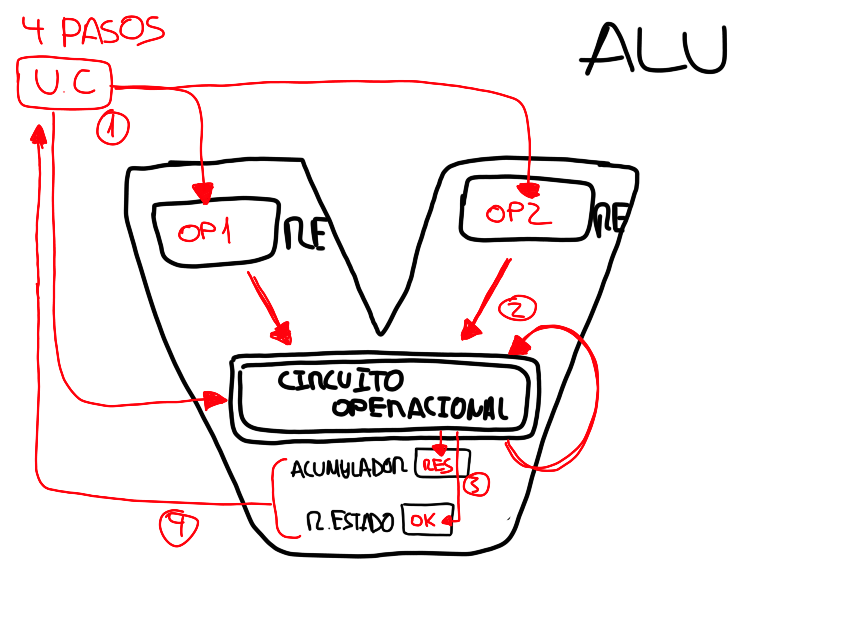 4 PASOS
ALU
U.C
1
OP1
RE
OP2
RE
2
CIRCUITO
OPERACIONAL
ACUMULADOR
RES
3
R.ESTADO
OK
4